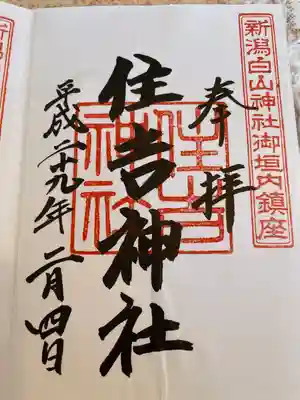 新潟白山神社御垣内鎮座
奉拝
住吉神社
住吉神社
平成二十九年二月四日